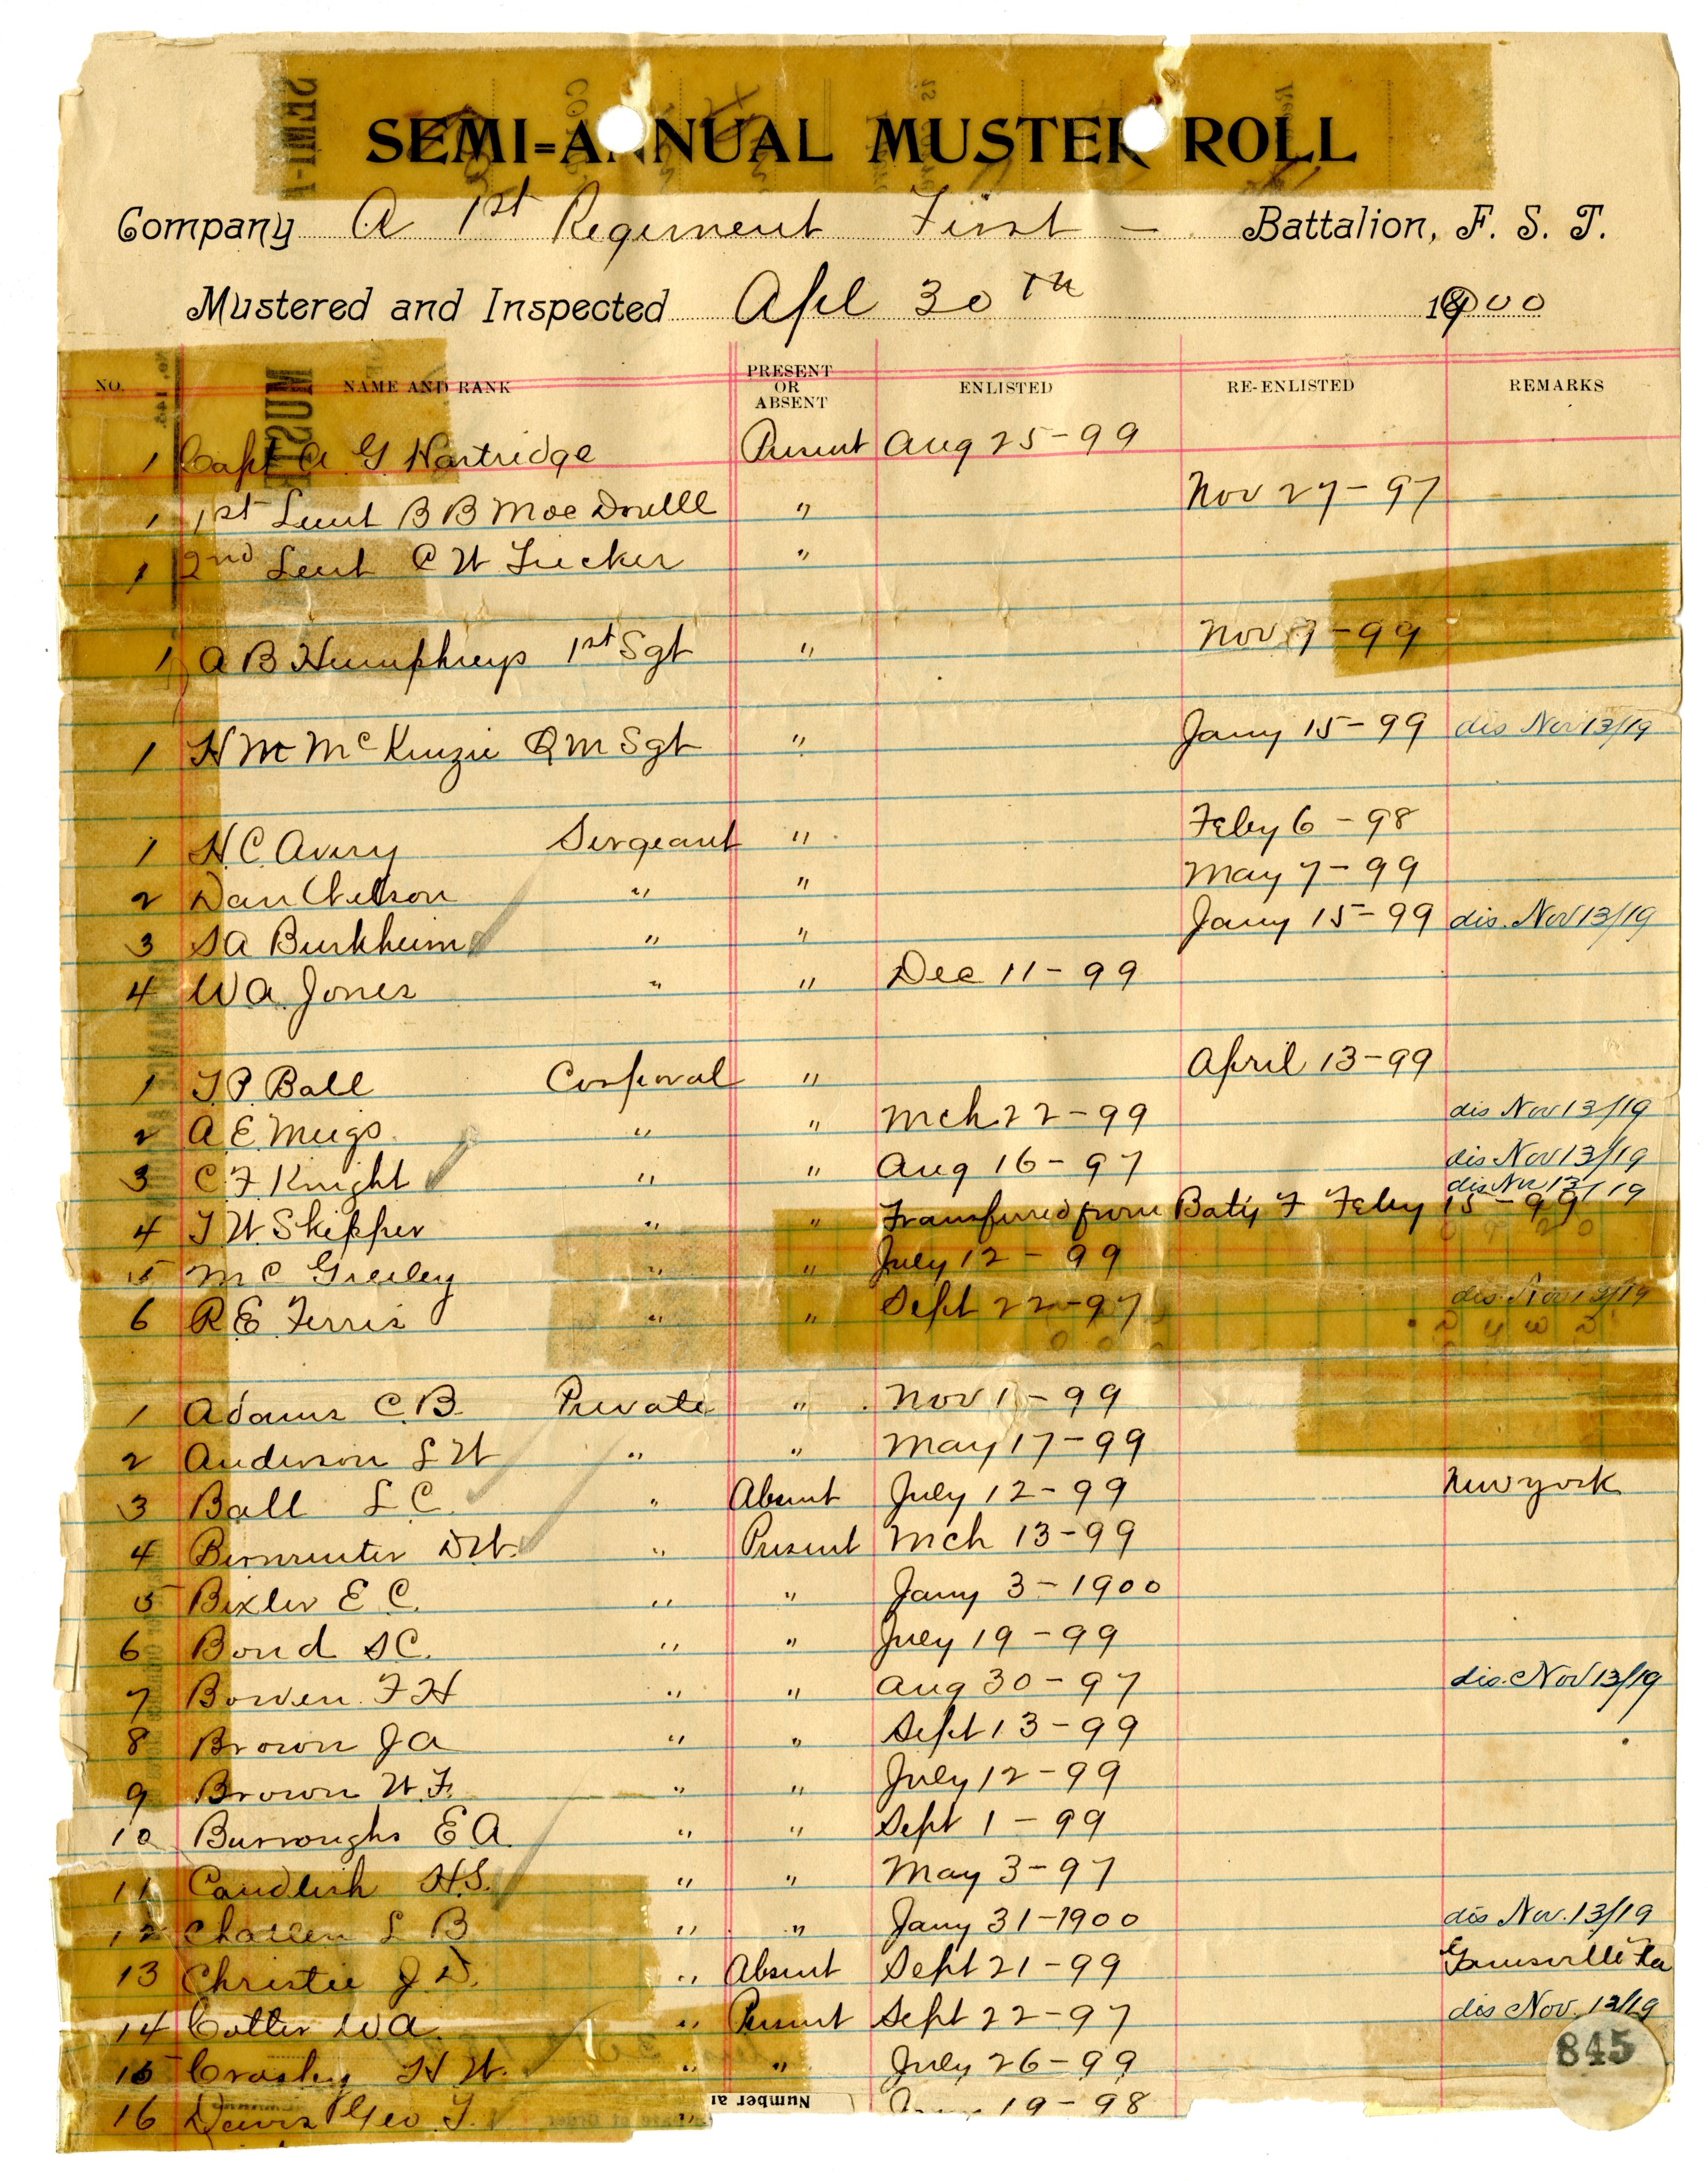 SEMI=ANNUAL MUSTER ROLL
Company A 1st Regiment First — Battalion, F. S. T.
Mustered and Inspected Apl 30th 1900
NO. NAME AND RANK PRESENT OR ABSENT ENLISTED RE-ENLISTED REMARKS
1 Capt A G Hartridge Present Aug 25-99
1 1st Lieut B B MacDonell " Nov 27-97
1 2nd Lieut C W Tucker "
1 A B Humphreys 1st Sgt " Nov 7-99
1 H M McKinzie Q M Sgt " Jany 15-99 dis Nov 13/19
1 H. C. Avery Sergeant " Feby 6-98
2 Dan " " May 7-99
3 S A Burkheim " " Jany 15-99 dis. Nov 13/19
4 W A Jones " " Dec 11-99
1 T. P. Ball Corporal " April 13-99
2 A E Meigs " " Mch 22-99 dis Nov 13/19
3 C F Knight " " Aug 16-97 dis Nov 13/19
dis Nov 13/19
4 T W Skipper " " Transferred from Baty F Feby 15-99
5 M C Greeley " " July 12-99
6 R E Ferris " " Sept 22-97 dis Nov 13/19
1 Adams C. B. Private " Nov 1-99
2 Anderson L W " " May 17-99
3 Ball L C. " Absent July 12-99 New York
4 D W. " Present Mch 13-99
5 Bixler E C. " " Jany 3-1900
6 Bond S C. " " July 19-99
7 Bowen F H " " Aug 30-97 dis. Nov 13/19
8 Brown J A " " Sept 13-99
9 Brown W. F. " " July 12-99
10 Burroughs E A. " " Sept 1-99
11 Candlish H. S. " " May 3-97
12 Challen L B " " Jany 31-1900 dis Nov. 13/19
13 Christie J. D. " Absent Sept 21-99 Gainesville Fla
14 Cotter W A. " Present Sept 22-97 dis Nov. 13/19
15 Crosby H W. " " July 26-99
Number
16 Davis Geo T. " 19-98
845